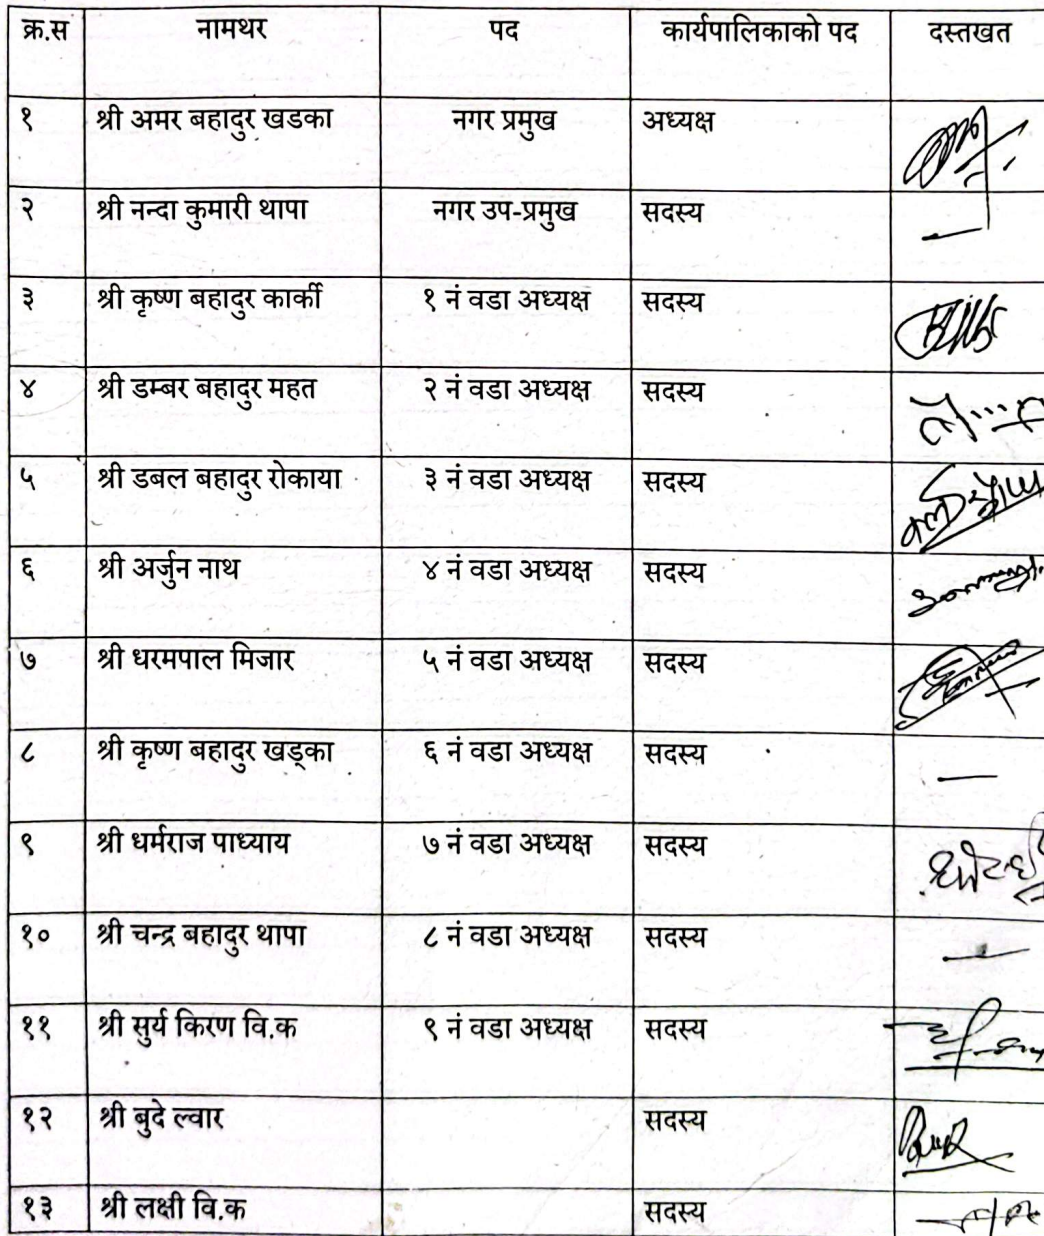 क्र.स नामथर पद कार्यपालिकाको पद दस्तखत
१ श्री अमर बहादुर खडका नगर प्रमुख अध्यक्ष
२ श्री नन्दा कुमारी थापा नगर उप-प्रमुख सदस्य
३ श्री कृष्ण बहादुर कार्की १ नं वडा अध्यक्ष सदस्य
४ श्री डम्बर बहादुर महत २ नं वडा अध्यक्ष सदस्य
५ श्री डबल बहादुर रोकाया ३ नं वडा अध्यक्ष सदस्य
६ श्री अर्जुन नाथ ४ नं वडा अध्यक्ष सदस्य
७ श्री धरमपाल मिजार ५ नं वडा अध्यक्ष सदस्य
८ श्री कृष्ण बहादुर खड्का ६ नं वडा अध्यक्ष सदस्य
९ श्री धर्मराज पाध्याय ७ नं वडा अध्यक्ष सदस्य
१० श्री चन्द्र बहादुर थापा ८ नं वडा अध्यक्ष सदस्य
११ श्री सुर्य किरण वि.क ९ नं वडा अध्यक्ष सदस्य
१२ श्री बुदे ल्वार सदस्य
१३ श्री लक्षी वि.क सदस्य